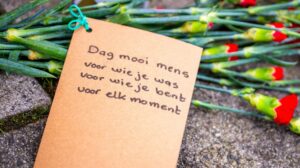 Dag mooi mens
voor wie je was
voor wie je bent
voor elk moment